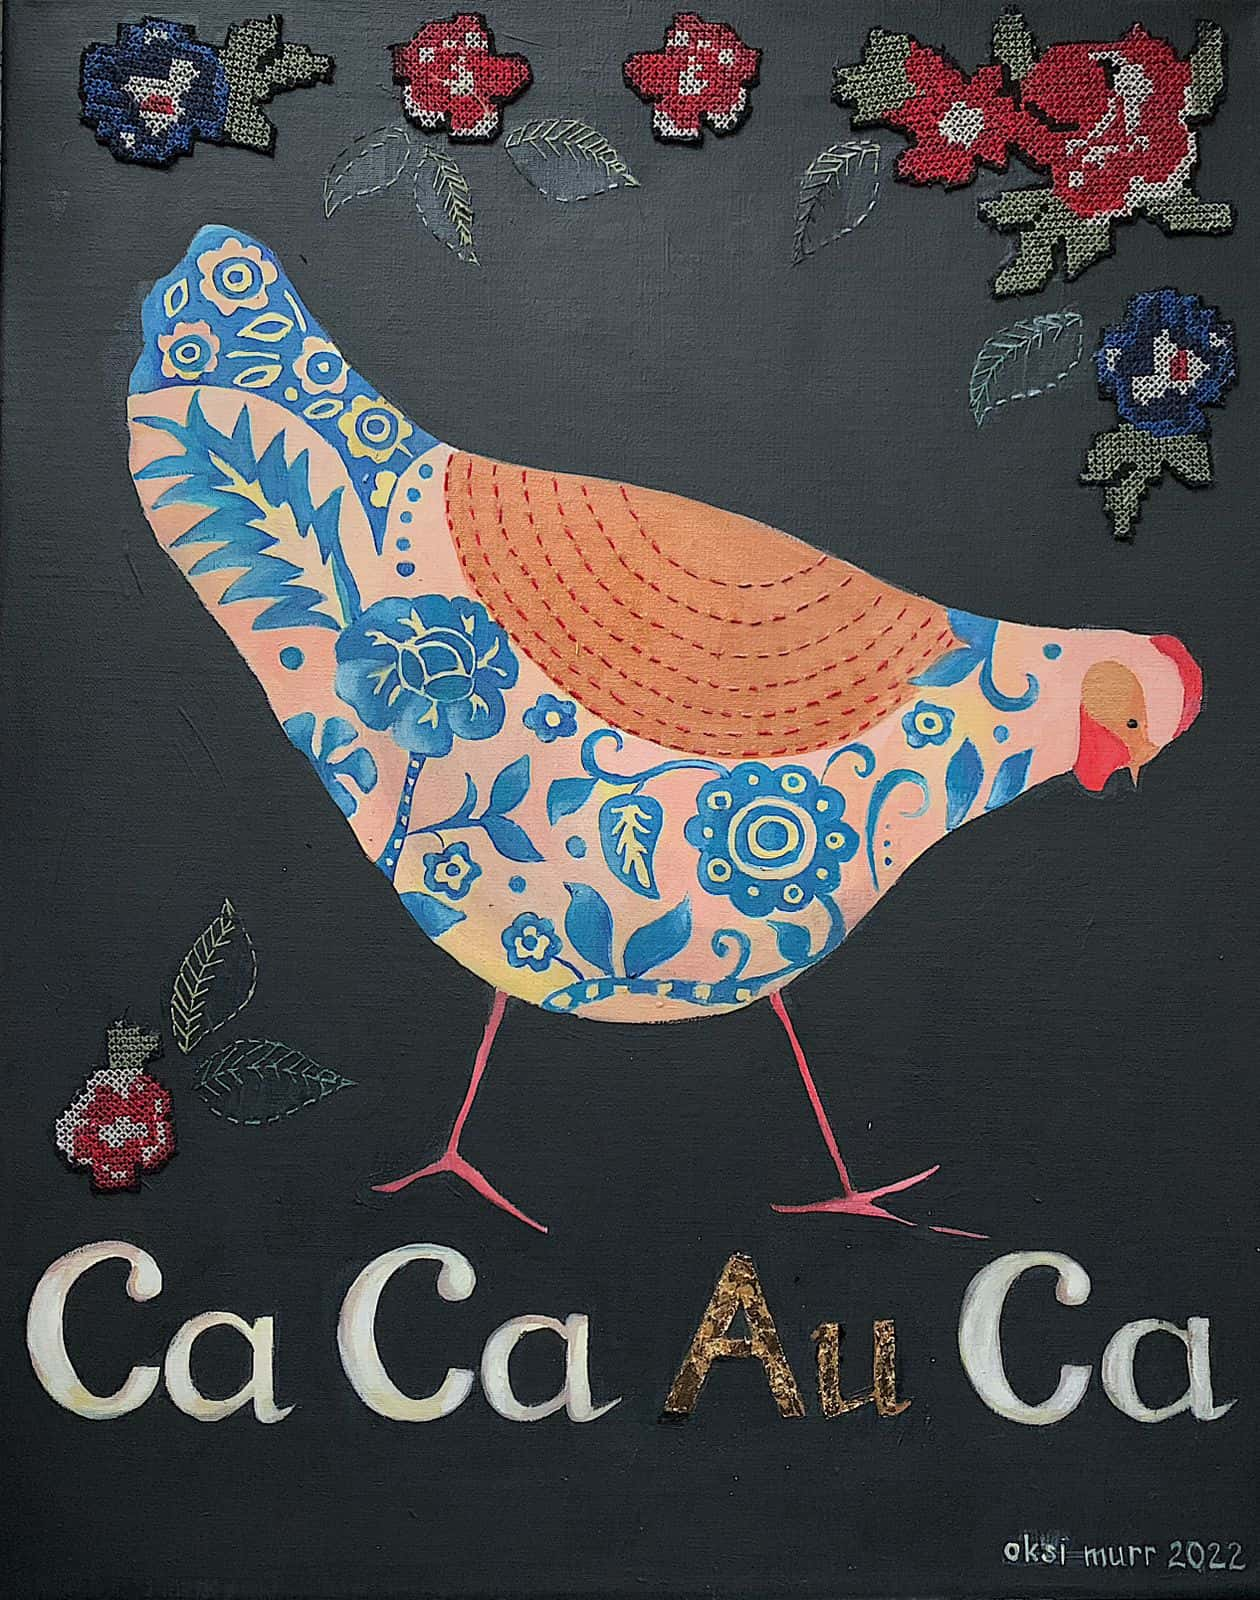 Ca Ca Au Ca
oksi murr 2022